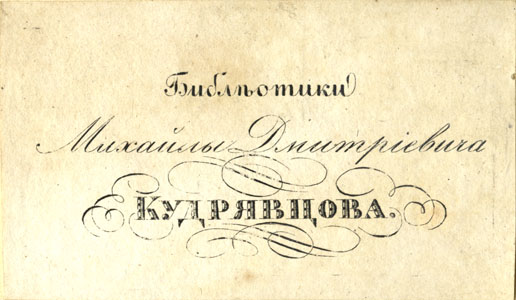 Библѣотики
Михайлы Дмитрiевича
КУДРЯВЦОВА.